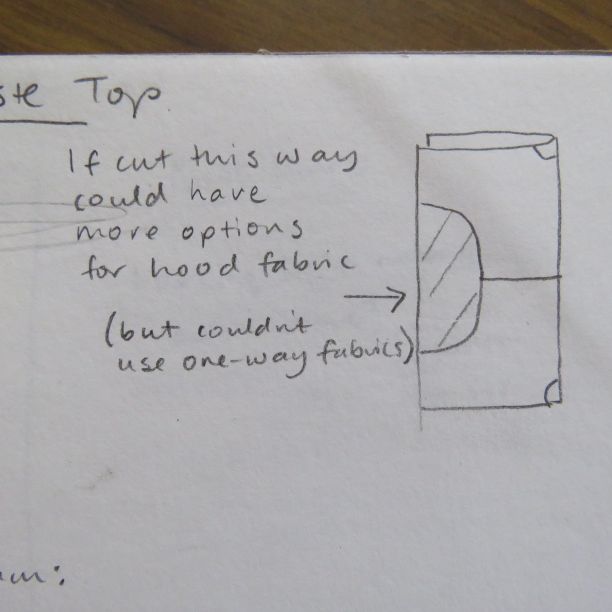 Top
If cut this way
could have
more options
for hood fabric
(but couldn't
use one-way fabrics)